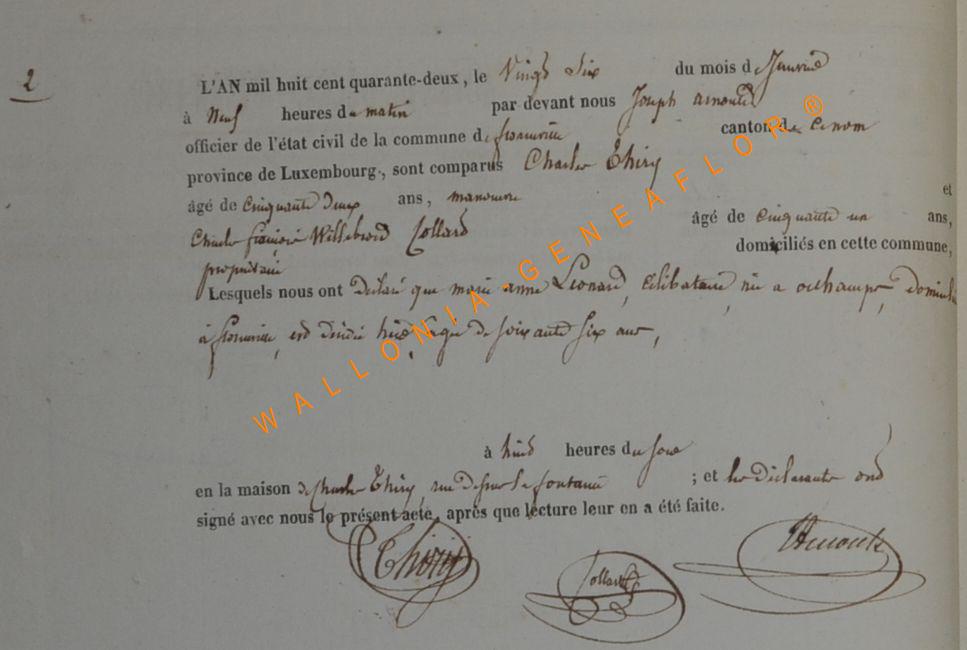 2
L'AN mil huit cent quarante-deux, le Vingt Six du mois de Janvier
à Neuf heures du matin par devant nous Joseph Arnould
officier de l'état civil de la commune de canton de
province de Luxembourg, sont comparus Charles Thiry
et
âgé de Cinquante Deux ans, manouvre
Charles françois Willebrord Collard âgé de Cinquante un ans,
propriétaire domiciliés en cette commune,
Lesquels nous ont Déclaré que marie anne Léonard, Célibataire née a ochamps, Domiciliée
à est décédée hier, agée de soixante six ans,
à huit heures du soir
en la maison de Charles Thiry, rue Dessous la fontaine ; et les Déclarants ont
signé avec nous le présent acte, après que lecture leur en a été faite.
Thiry Collard Arnould
WALLONIA-GENEAFLOR®